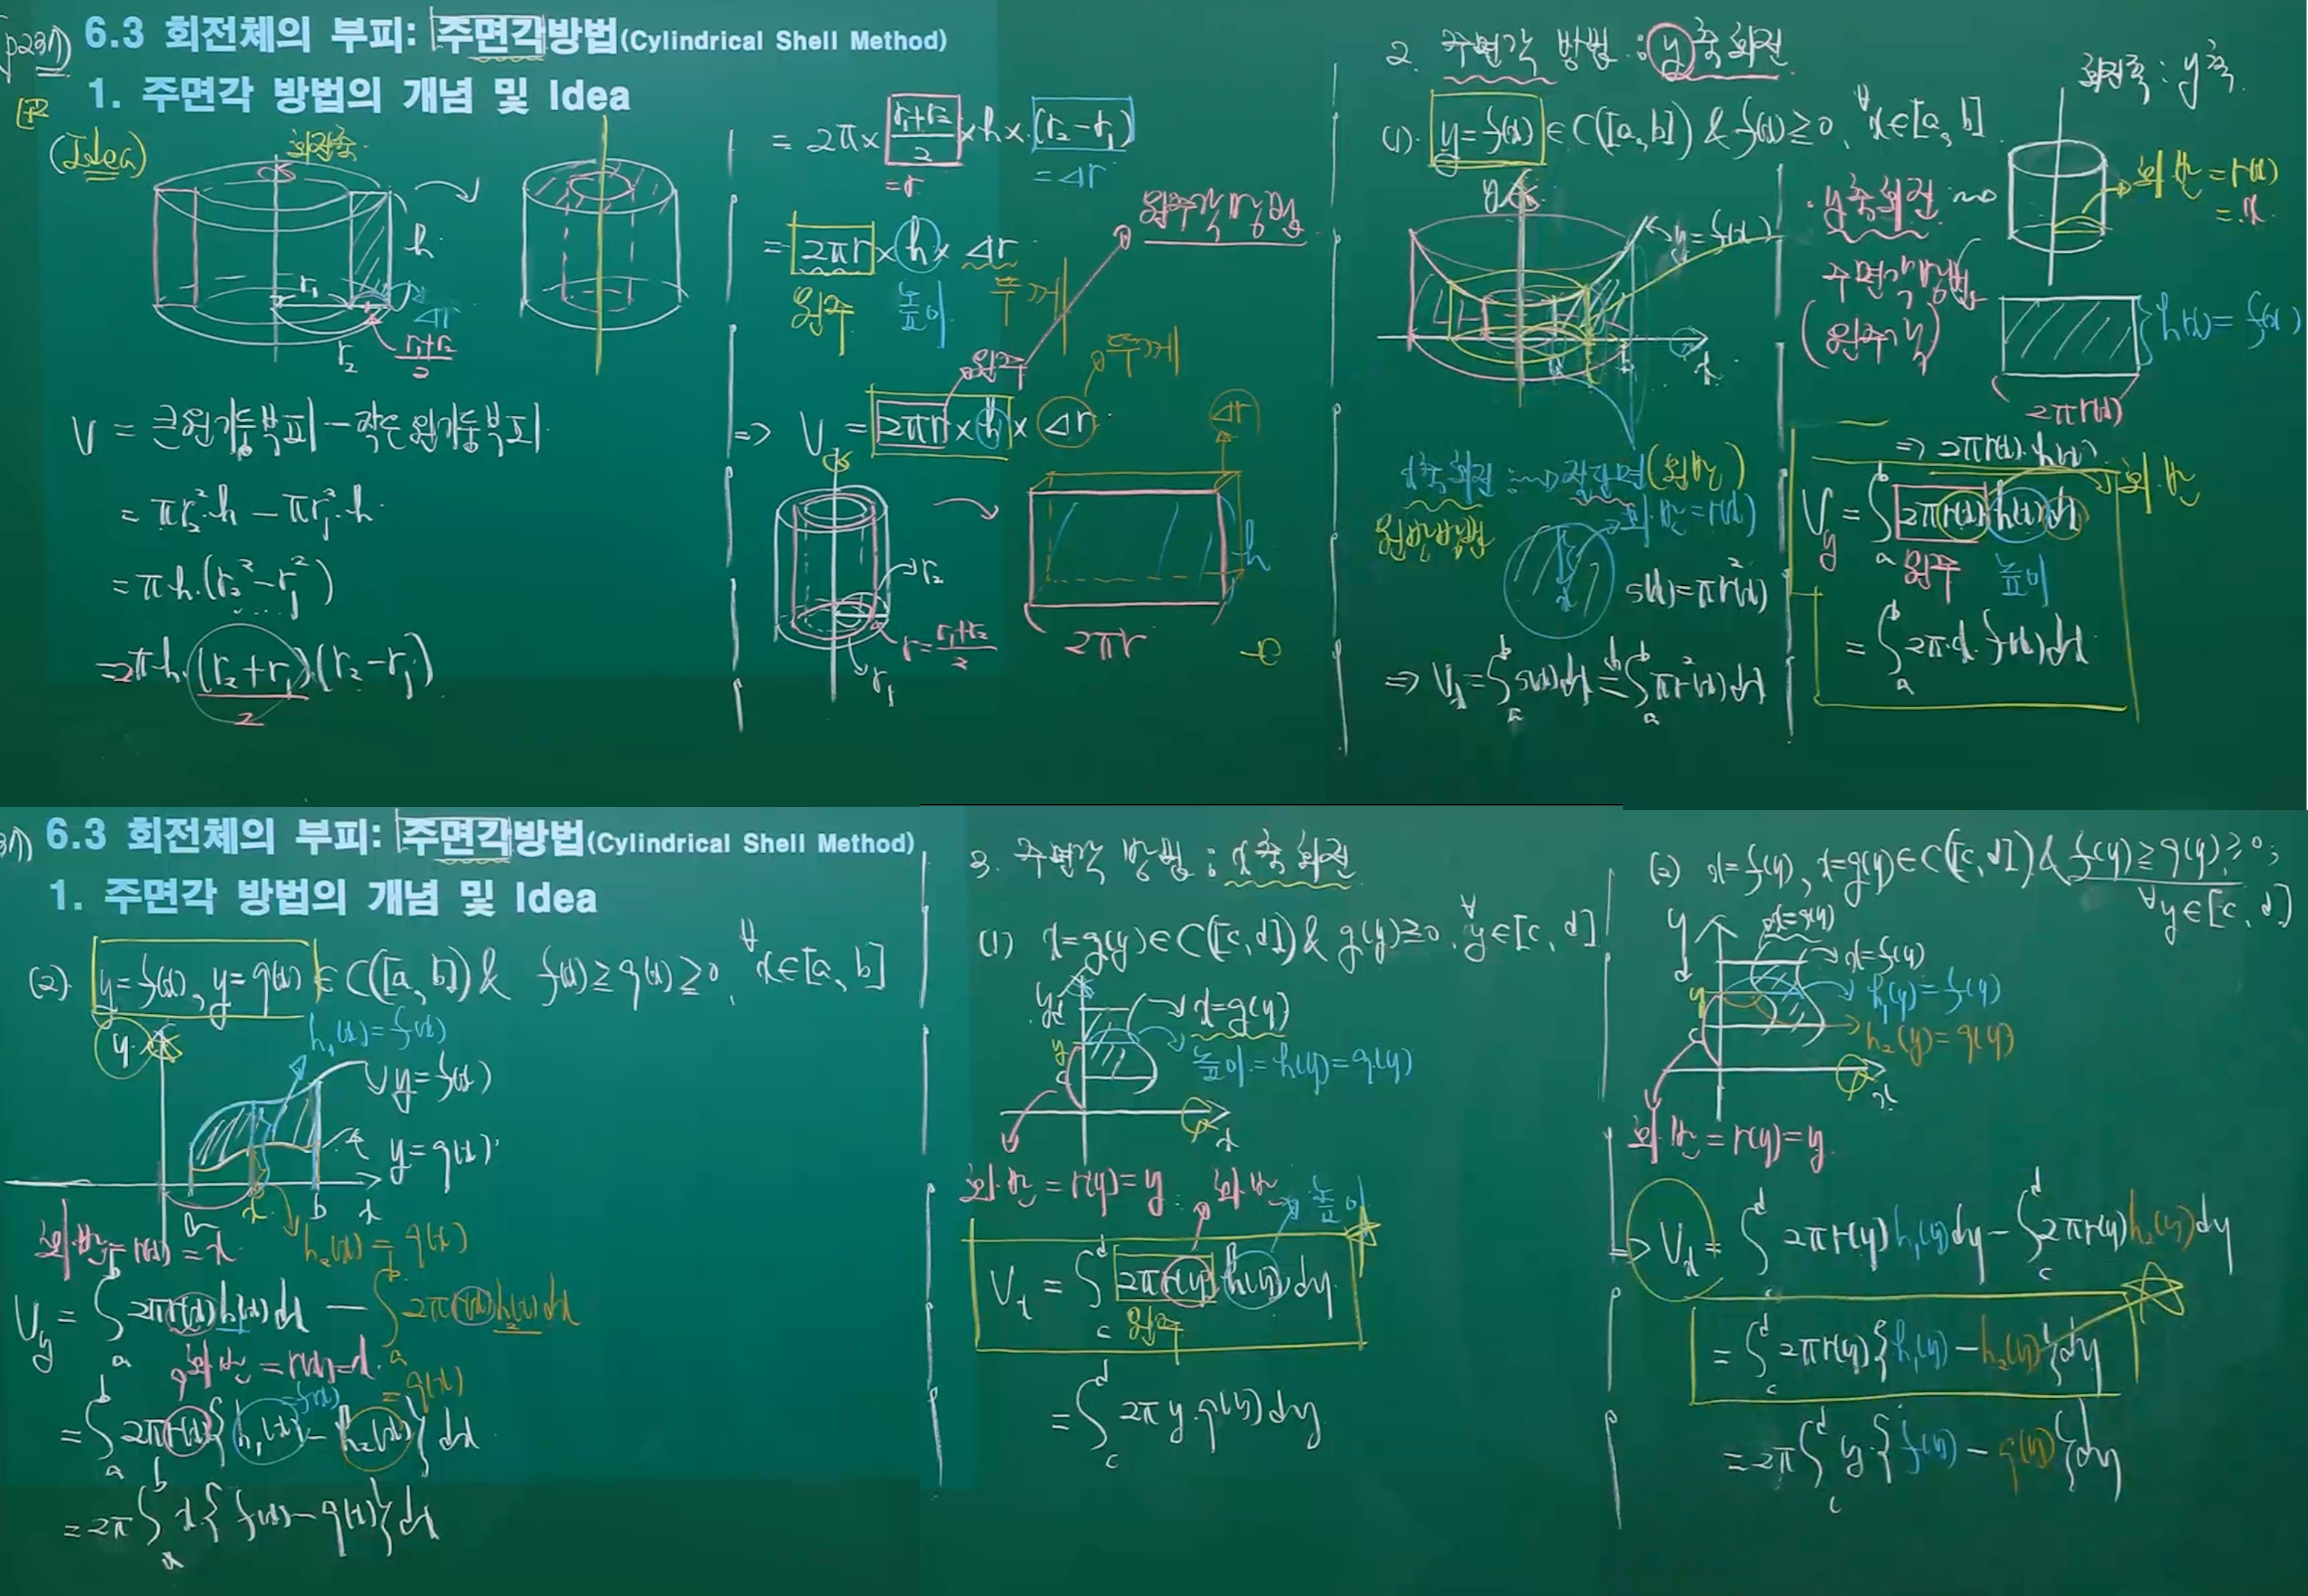 p237)
6.3 회전체의 부피: 주면각방법(Cylindrical Shell Method)
1. 주면각 방법의 개념 및 Idea
(Idea)
회전축
h
r₁
Δr
r₂
(r₁+r₂)/2
V = 큰원기둥부피 - 작은원기둥부피
= πr₂²·h - πr₁²·h
= π·h·(r₂²-r₁²)
= 2π·h·(r₂+r₁)/2·(r₂-r₁)
= 2π × (r₁+r₂)/2 × h × (r₂-r₁)
= r
= Δr
= 2πr × h × Δr
원주 높이 두께
원주각방법
원주
두께
=> V = 2πr × h × Δr
Δr
h
r₂
r = (r₁+r₂)/2
r₁
2πr
2. 주면각 방법 : y축회전
(1). y=f(x) ∈ C([a,b]) & f(x)≥0, ∀x∈[a,b]
회전축 : y축
y
y=f(x)
x
·y축회전
주면각방법
(원주각)
회·반 = r(x)
= x
h(x) = f(x)
2πr(x)
=> 2πr(x)·h(x)
x축회전 ⇝ 절단면(원반)
원반방법
회·반=r(x)
s(x)=πr²(x)
=> Vx = ∫ₐᵇ s(x)dx = ∫ₐᵇ πr²(x)dx
회·반
Vy = ∫ₐᵇ 2πr(x) h(x) dx
원주 높이
= ∫ₐᵇ 2π·x·f(x)dx
6.3 회전체의 부피: 주면각방법(Cylindrical Shell Method)
1. 주면각 방법의 개념 및 Idea
(2). y=f(x), y=g(x) ∈ C([a,b]) & f(x)≥g(x)≥0, ∀x∈[a,b]
y
h₁(x)=f(x)
y=f(x)
y=g(x)
a x b x
회·반=r(x)=x
h₂(x)=g(x)
Vy = ∫ₐᵇ 2πr(x)h₁(x)dx - ∫ₐᵇ 2πr(x)h₂(x)dx
회·반=r(x)=x
=f(x)
=g(x)
= ∫ₐᵇ 2πr(x){h₁(x)-h₂(x)}dx
= 2π∫ₐᵇ x{f(x)-g(x)}dx
3. 주면각 방법 : x축회전
(1) x=g(y)∈C([c,d]) & g(y)≥0, ∀y∈[c,d]
y
d
x=g(y)
y
높이=h(y)=g(y)
c
x
회·반=r(y)=y
회·반
높이
Vx = ∫_c^d 2πr(y) h(y) dy
원주
= ∫_c^d 2πy·g(y)dy
(2) x=f(y), x=g(y)∈C([c,d]) & f(y)≥g(y)≥0,
∀y∈[c,d]
y
x=g(y)
d
x=f(y)
y
h₁(y)=f(y)
c
h₂(y)=g(y)
x
회·반=r(y)=y
=> Vx = ∫_c^d 2πr(y)h₁(y)dy - ∫_c^d 2πr(y)h₂(y)dy
= ∫_c^d 2πr(y){h₁(y)-h₂(y)}dy
= 2π∫_c^d y·{f(y)-g(y)}dy